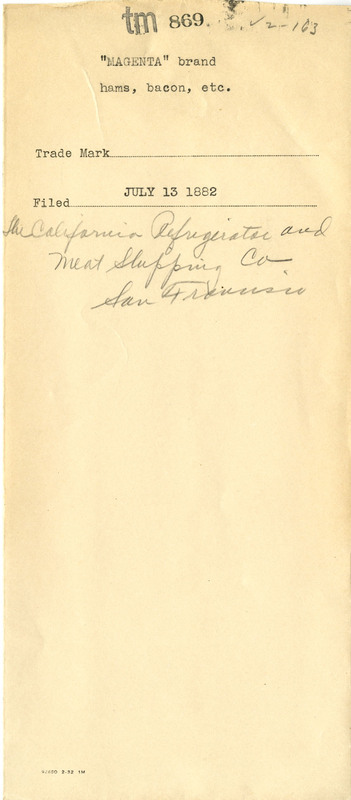 tm 869. V2-163
"MAGENTA" brand
hams, bacon, etc.
Trade Mark
JULY 13 1882
Filed
The California Refrigerator and
Meat Shipping Co
San Francisco
2-52 1M